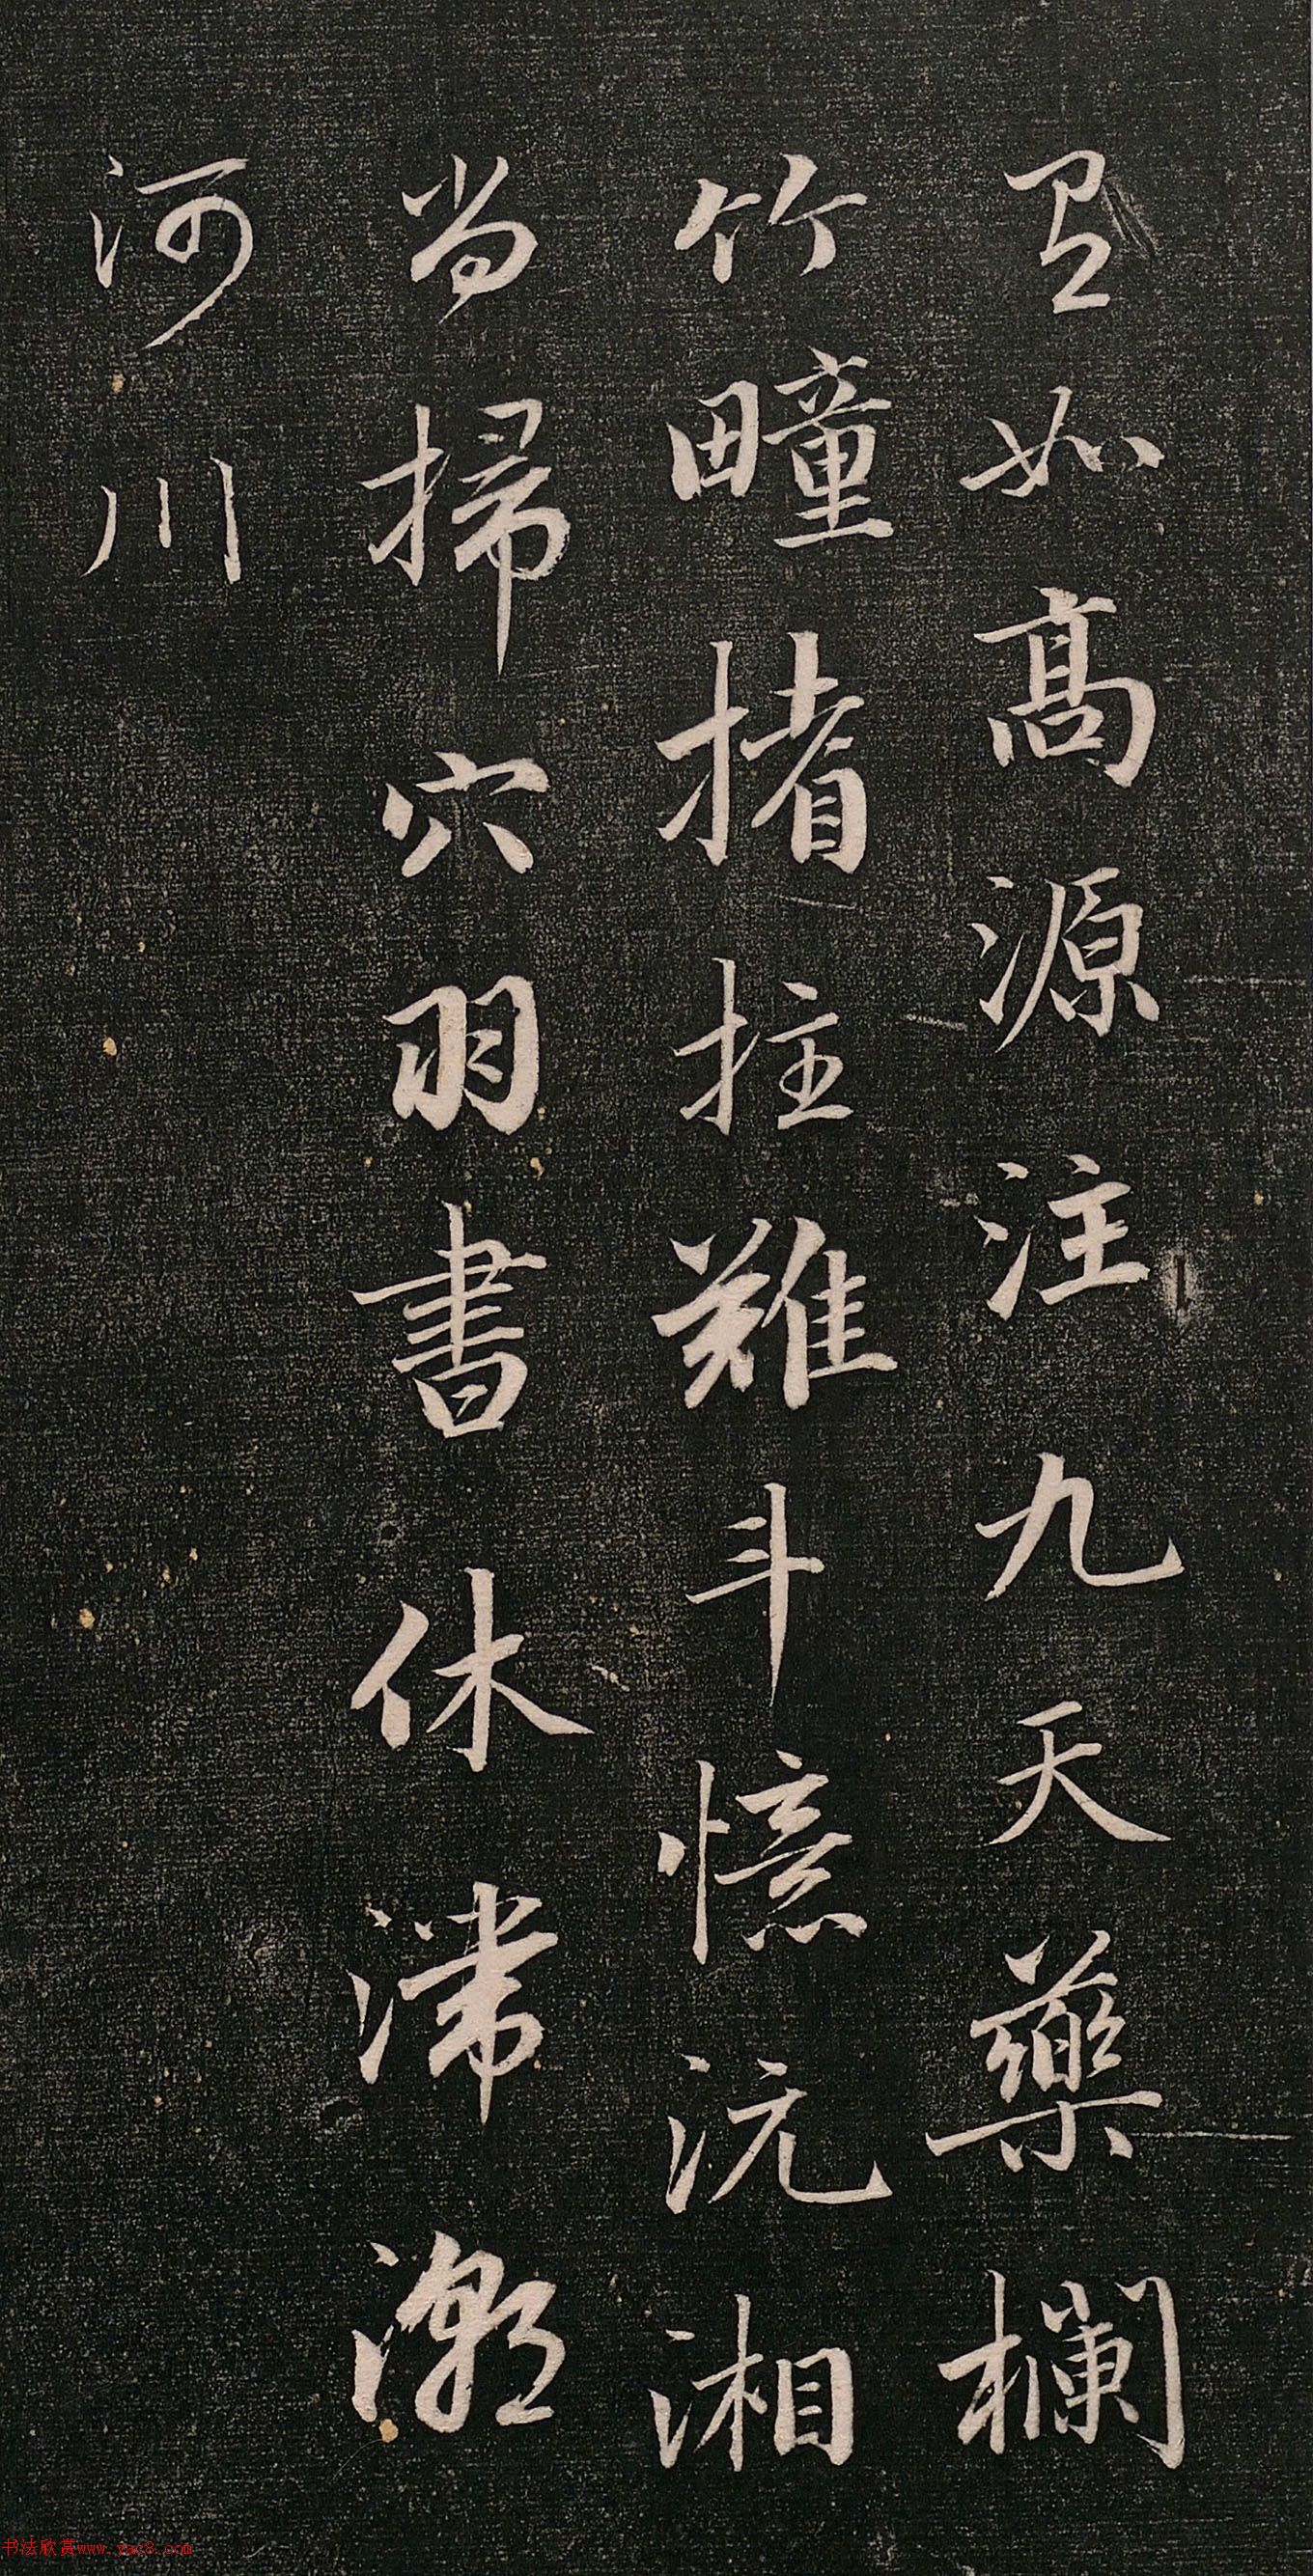 如高源注九天藥欄
竹疃拄難斗憶沅湘
當掃穴羽書休滯潮
河川
书法欣赏www.yac8.com